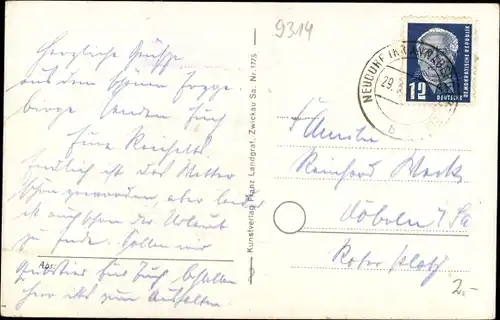 9314
Herzliche Grüße
aus dem schönen Erzge-
birge senden Euch
Eure Reichelts
Endlich ist das Wetter
schön geworden, aber leider
ist auch schon der Urlaub
zu Ende. Sollen wir
Quartier für Euch bestellen
hier ist's zum Aushalten.
Abs:
Kunstverlag Franz Landgraf, Zwickau Sa. Nr. 1725
NEUDORF (KR ANNABERG)
29.
b
12
DEUTSCHE
DEMOKRATISCHE REPUBLIK
Familie
Reinhard
Döbeln / Sa
Roter Platz
2.-